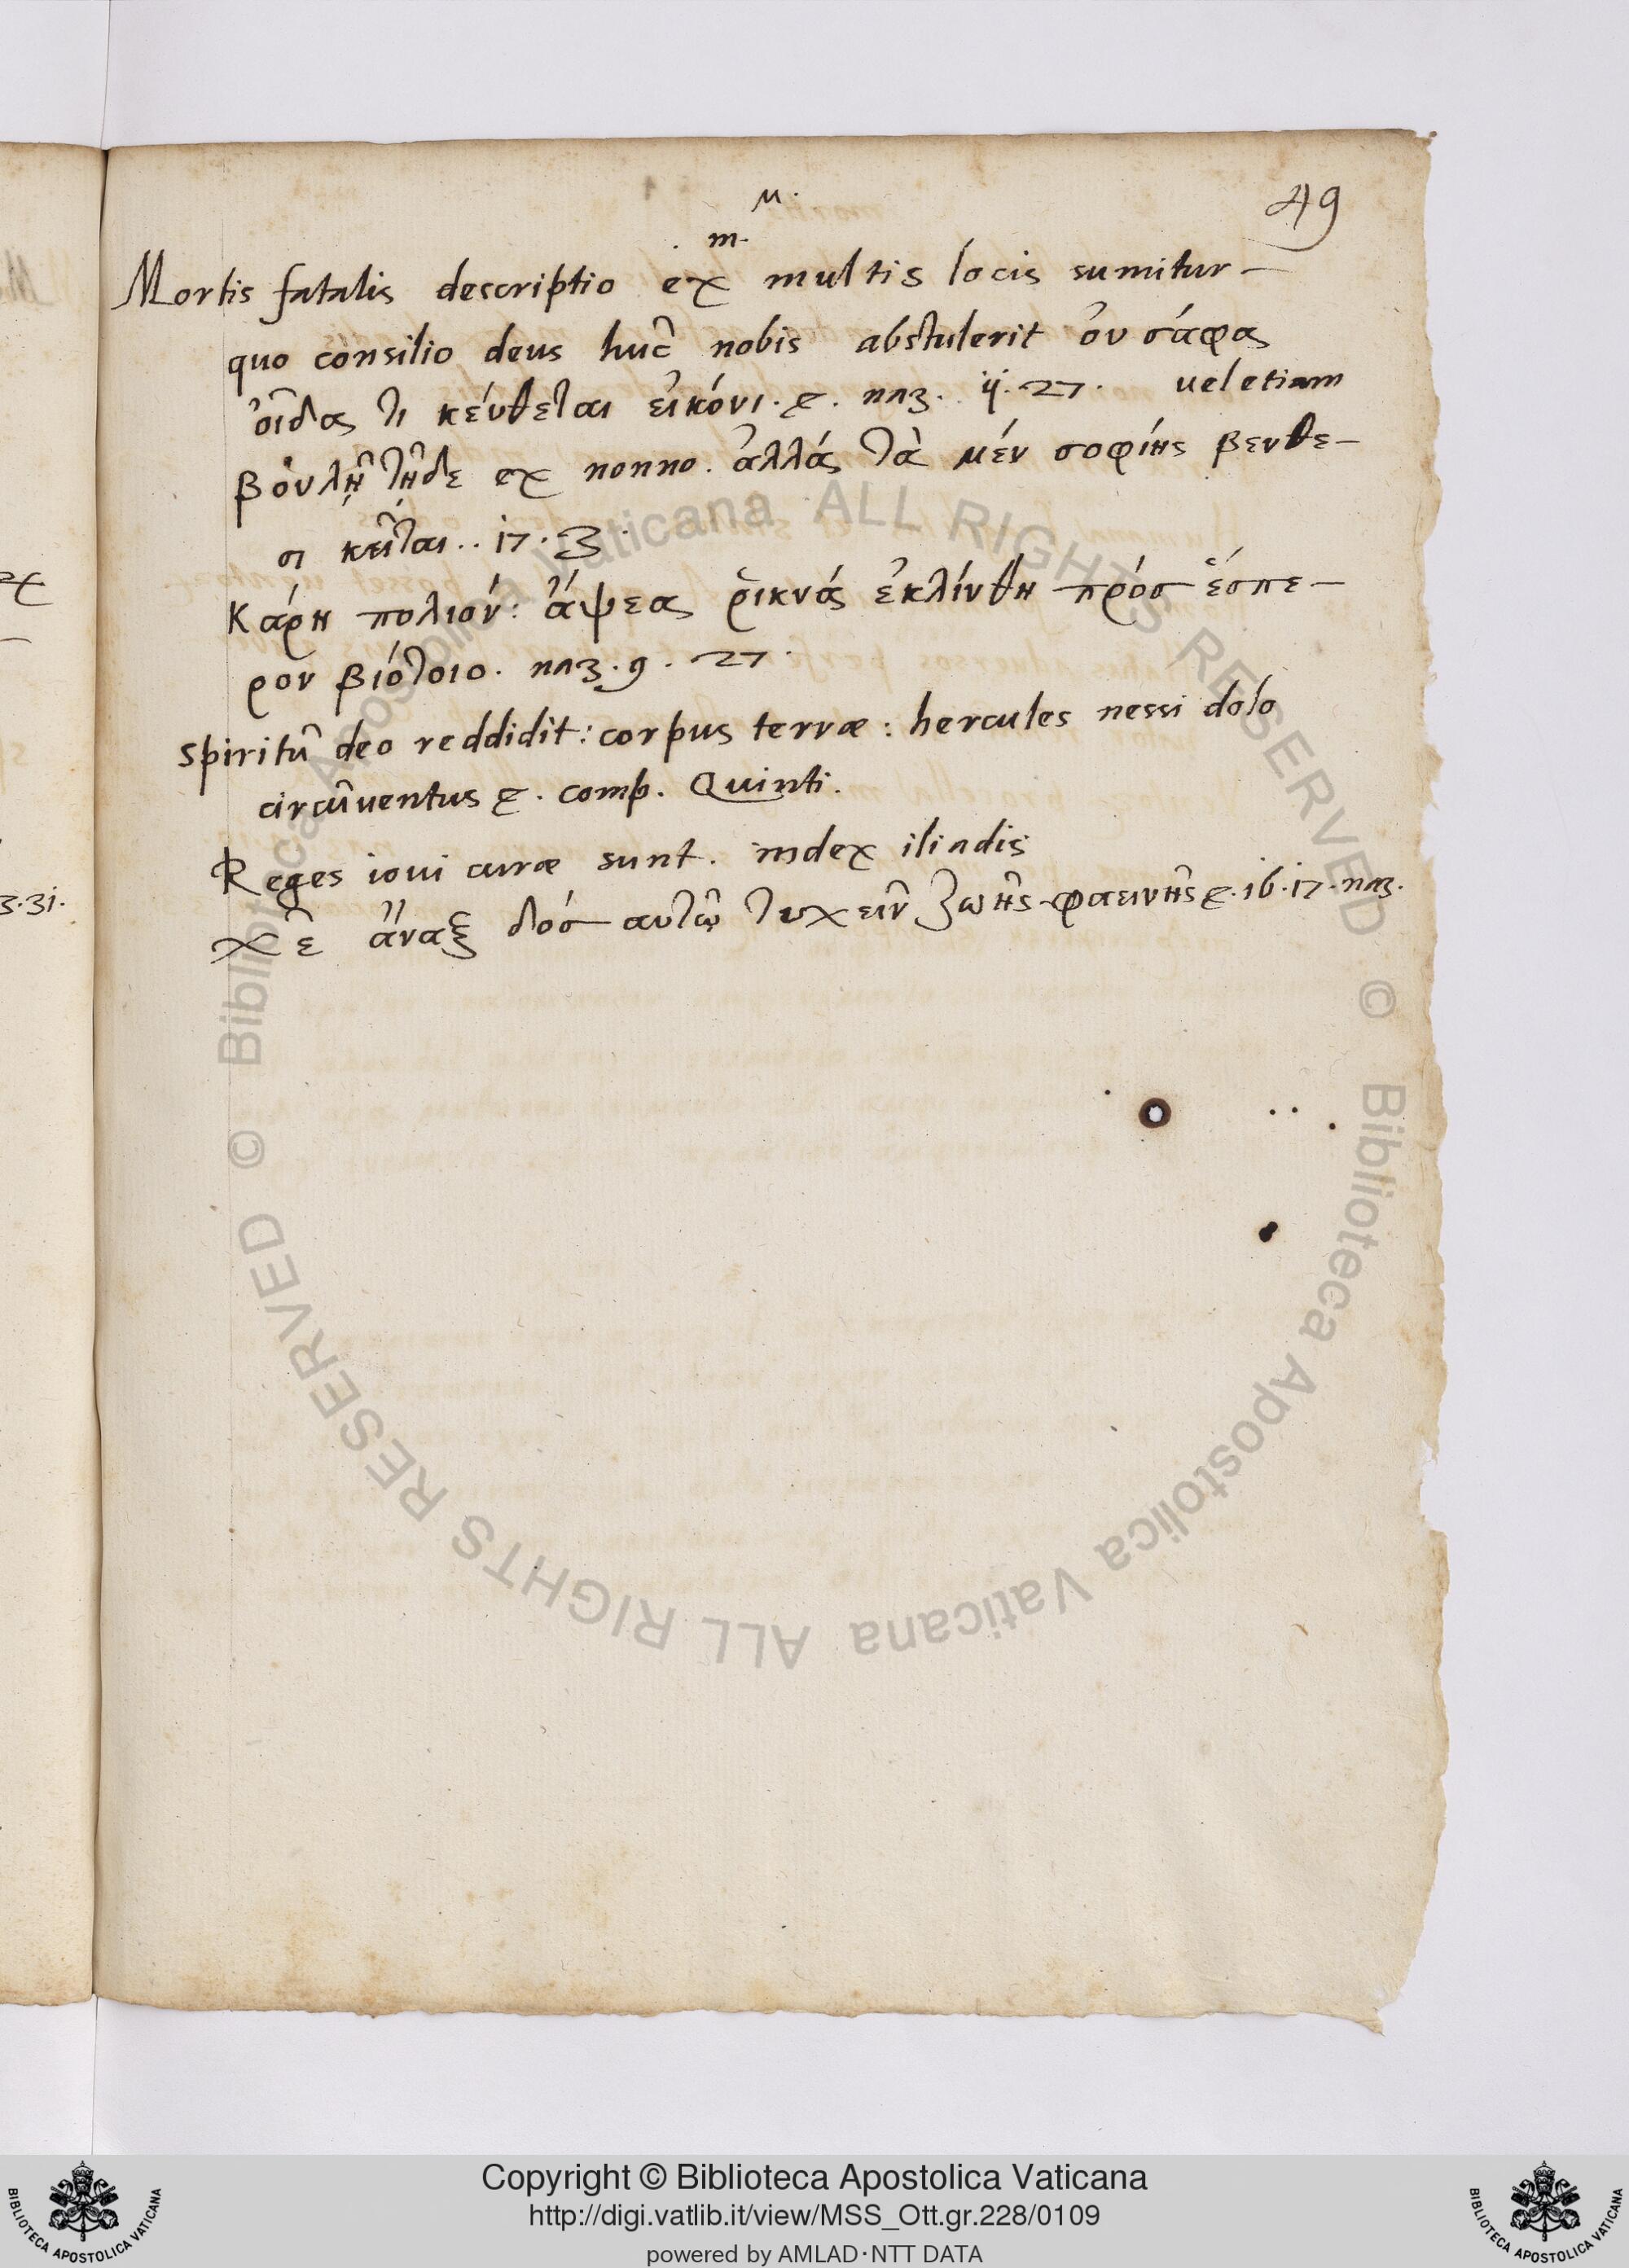 μ.
49
. m.
Mortis fatalis descriptio ex multis locis sumitur-
quo consilio deus huc̃ nobis abstulerit ὀυ σάφα
ὀῖδας τι κέυθεται εἰκόνι. ę. naz. ij. 27. uel etiam
βὀυλῇ τῇδε ex nonno. ἀλλά τὰ μέν σοφίης βενθε-
σι κεῖται.. 17. 3.
Κάρη πολιόν: ἅψεα ῥικνά ἐκλίνθη πρόσ ἕσπε-
ρον βιότοιο. naz. 9. 27.
spiritũ deo reddidit: corpus terræ: hercules nessi dolo
circũuentus ę. comp. Quinti.
Reges ioui curæ sunt. index iliadis
χε̃ ἄναξ δόσ αυτῶ τυχεῖν ζωῆς φαεινῆς ę. 16. 17. naz.
ex
3. 31.
Copyright © Biblioteca Apostolica Vaticana
http://digi.vatlib.it/view/MSS_Ott.gr.228/0109
powered by AMLAD·NTT DATA
© Biblioteca Apostolica Vaticana ALL RIGHTS RESERVED
© Biblioteca Apostolica Vaticana ALL RIGHTS RESERVED
BIBLIOTECA APOSTOLICA VATICANA
BIBLIOTECA APOSTOLICA VATICANA